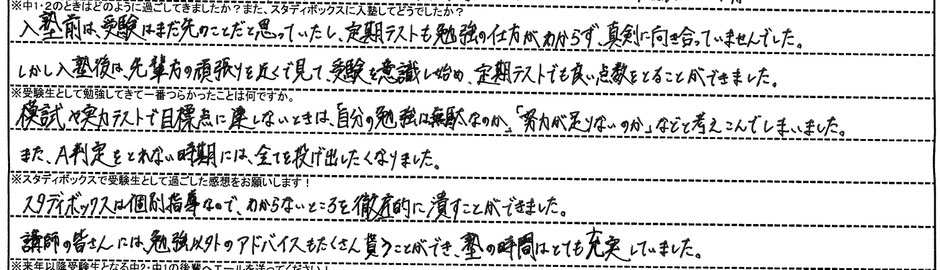 ※中1・2のときはどのように過ごしてきましたか?また、スタディボックスに入塾してどうでしたか?
入塾前は、受験はまだ先のことだと思っていたし、定期テストも勉強の仕方がわからず、真剣に向き合っていませんでした。
しかし入塾後は、先輩方の頑張りを近くで見て、受験を意識し始め、定期テストでも良い点数をとることができました。
※受験生として勉強してきて一番つらかったことは何ですか。
模試や実力テストで目標点に達しないときは、「自分の勉強は無駄なのか」、「努力が足りないのか」などと考えこんでしまいました。
また、A判定をとれない時期には、全てを投げ出したくなりました。
※スタディボックスで受験生として過ごした感想をお願いします!
スタディボックスは個別指導なので、わからないところを徹底的に潰すことができました。
講師の皆さんには、勉強以外のアドバイスもたくさん貰うことができ、塾の時間はとても充実していました。
※来年以降受験生となる中2・中1の後輩へエールを送ってください!